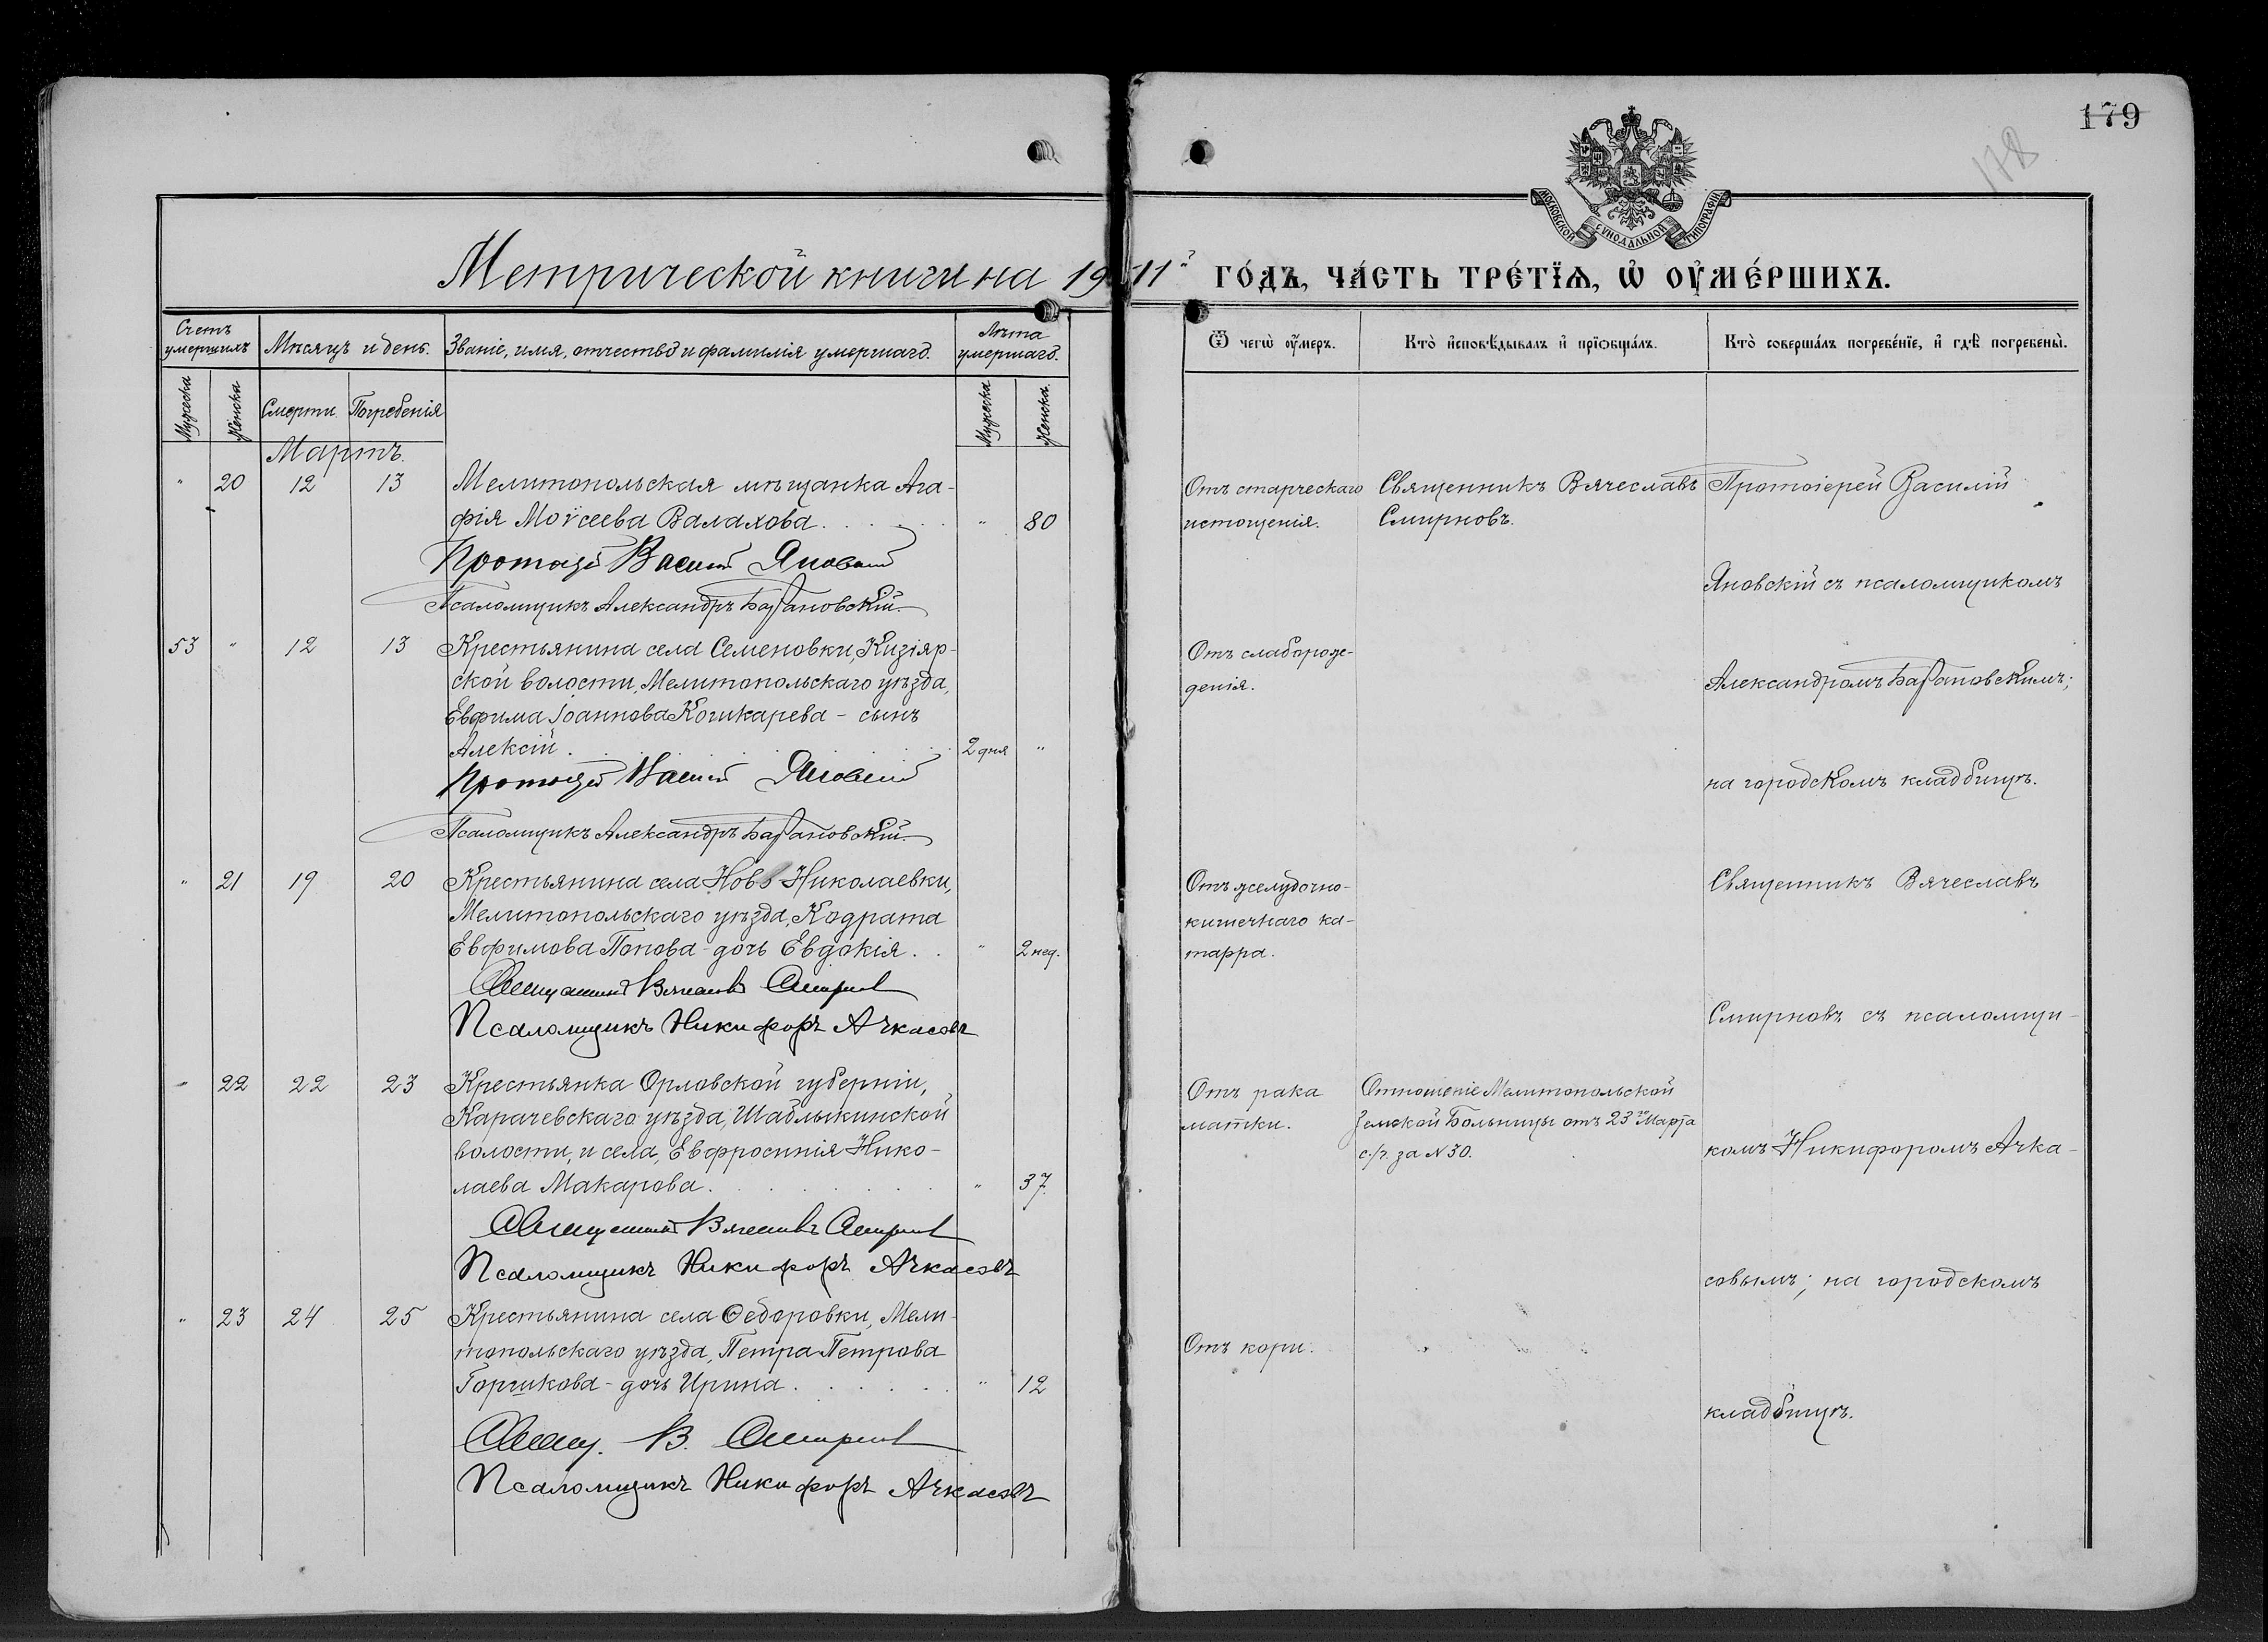 179
178
МОСКОВСКОЙ СѴНОДАЛЬНОЙ ТИПОГРАФІИ
Метрической книги на 1911й ГО́ДЪ, ЧА́СТЬ ТРЕ́ТЇѦ, Ѡ҆ ОУ҆МЕ́РШИХЪ.
Счетъ умершихъ
Мѣсяцъ и день.
Званіе, имя, отчество и фамилія умершаго.
Лѣта умершаго.
Ѿ чегѡ̀ оу҆́меръ.
Кто̀ и҆сповѣ́дывалъ и҆ прїѡбща́лъ.
Кто̀ соверша́лъ погребе́нїе, и҆ гдѣ̀ погребены̀.
Мужеска
Женска
Смерти
Погребенія
Мужеска
Женска
Мартъ.
" 20 12 13 Мелитопольская мѣщанка Ага-
фія Моѵсеева Валахова. " 80
Протоіерей Василій Яновскій
Псаломщикъ Александръ Барановскій.
Отъ старческаго
истощенія.
Священникъ Вячеславъ
Смирновъ.
Протоіерей Василій
Яновскій съ псаломщикомъ
Александромъ Барановскимъ;
на городскомъ кладбищѣ.
53 " 12 13 Крестьянина села Семеновки, Кизіяр-
ской волости, Мелитопольскаго уѣзда,
Евфима Іоаннова Кочикарева - сынъ
Алексій. 2 дня "
Протоіерей Василій Яновскій
Псаломщикъ Александръ Барановскій.
Отъ слаборож-
денія.
" 21 19 20 Крестьянина села Ново Николаевки,
Мелитопольскаго уѣзда, Кодрата
Евфимова Попова - дочь Евдокія. " 2 нед.
Священникъ Вячеславъ Смирновъ
Псаломщикъ Никифоръ Ачкасовъ
Отъ желудочно-
кишечнаго ка-
тарра.
Священникъ Вячеславъ
Смирновъ съ псаломщи-
комъ Никифоромъ Ачка-
совымъ; на городскомъ
кладбищѣ.
" 22 22 23 Крестьянка Орловской губерніи,
Карачевскаго уѣзда, Шаблыкинской
волости, и села, Евфросинія Нико-
лаева Макарова. " 37
Священникъ Вячеславъ Смирновъ
Псаломщикъ Никифоръ Ачкасовъ
Отъ рака
матки.
Отношеніе Мелитопольской
Земской Больницы отъ 23го Марта
с/г. за № 30.
" 23 24 25 Крестьянина села Ѳедоровки, Мели-
топольскаго уѣзда, Петра Петрова
Горшкова - дочь Ирина. " 12
Свящ. В. Смирновъ
Псаломщикъ Никифоръ Ачкасовъ
Отъ кори.